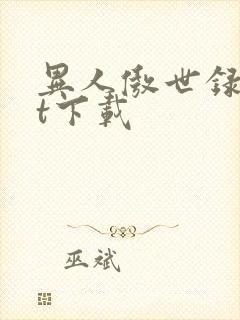 異人傲世録
t下載
巫斌